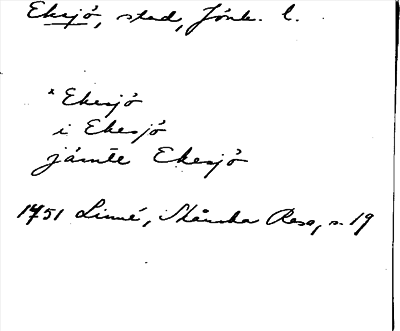 Eksjö, stad, Jönk. l.
* Ekesjö
i Ekesjö
jämte Ekesjö
1751 Linné, Skånska Resa, s. 19